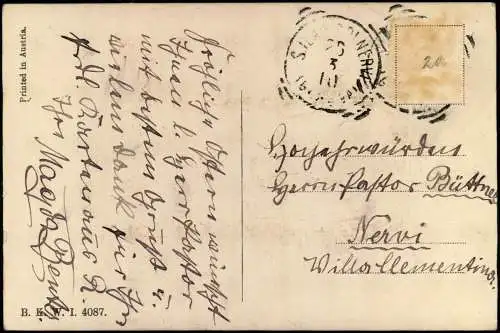 Printed in Austria.
B. K. W. I. 4087.
Fröhliche Ostern wünscht
Ihnen l. Herr Pastor
mit besten Gruß u.
vielem Dank für Ihr
frdl. Karte
Ihre Magda
25
3
10
20
Hochehrwürden
Herrn Pastor Büttner
Nervi
Villa Clementine